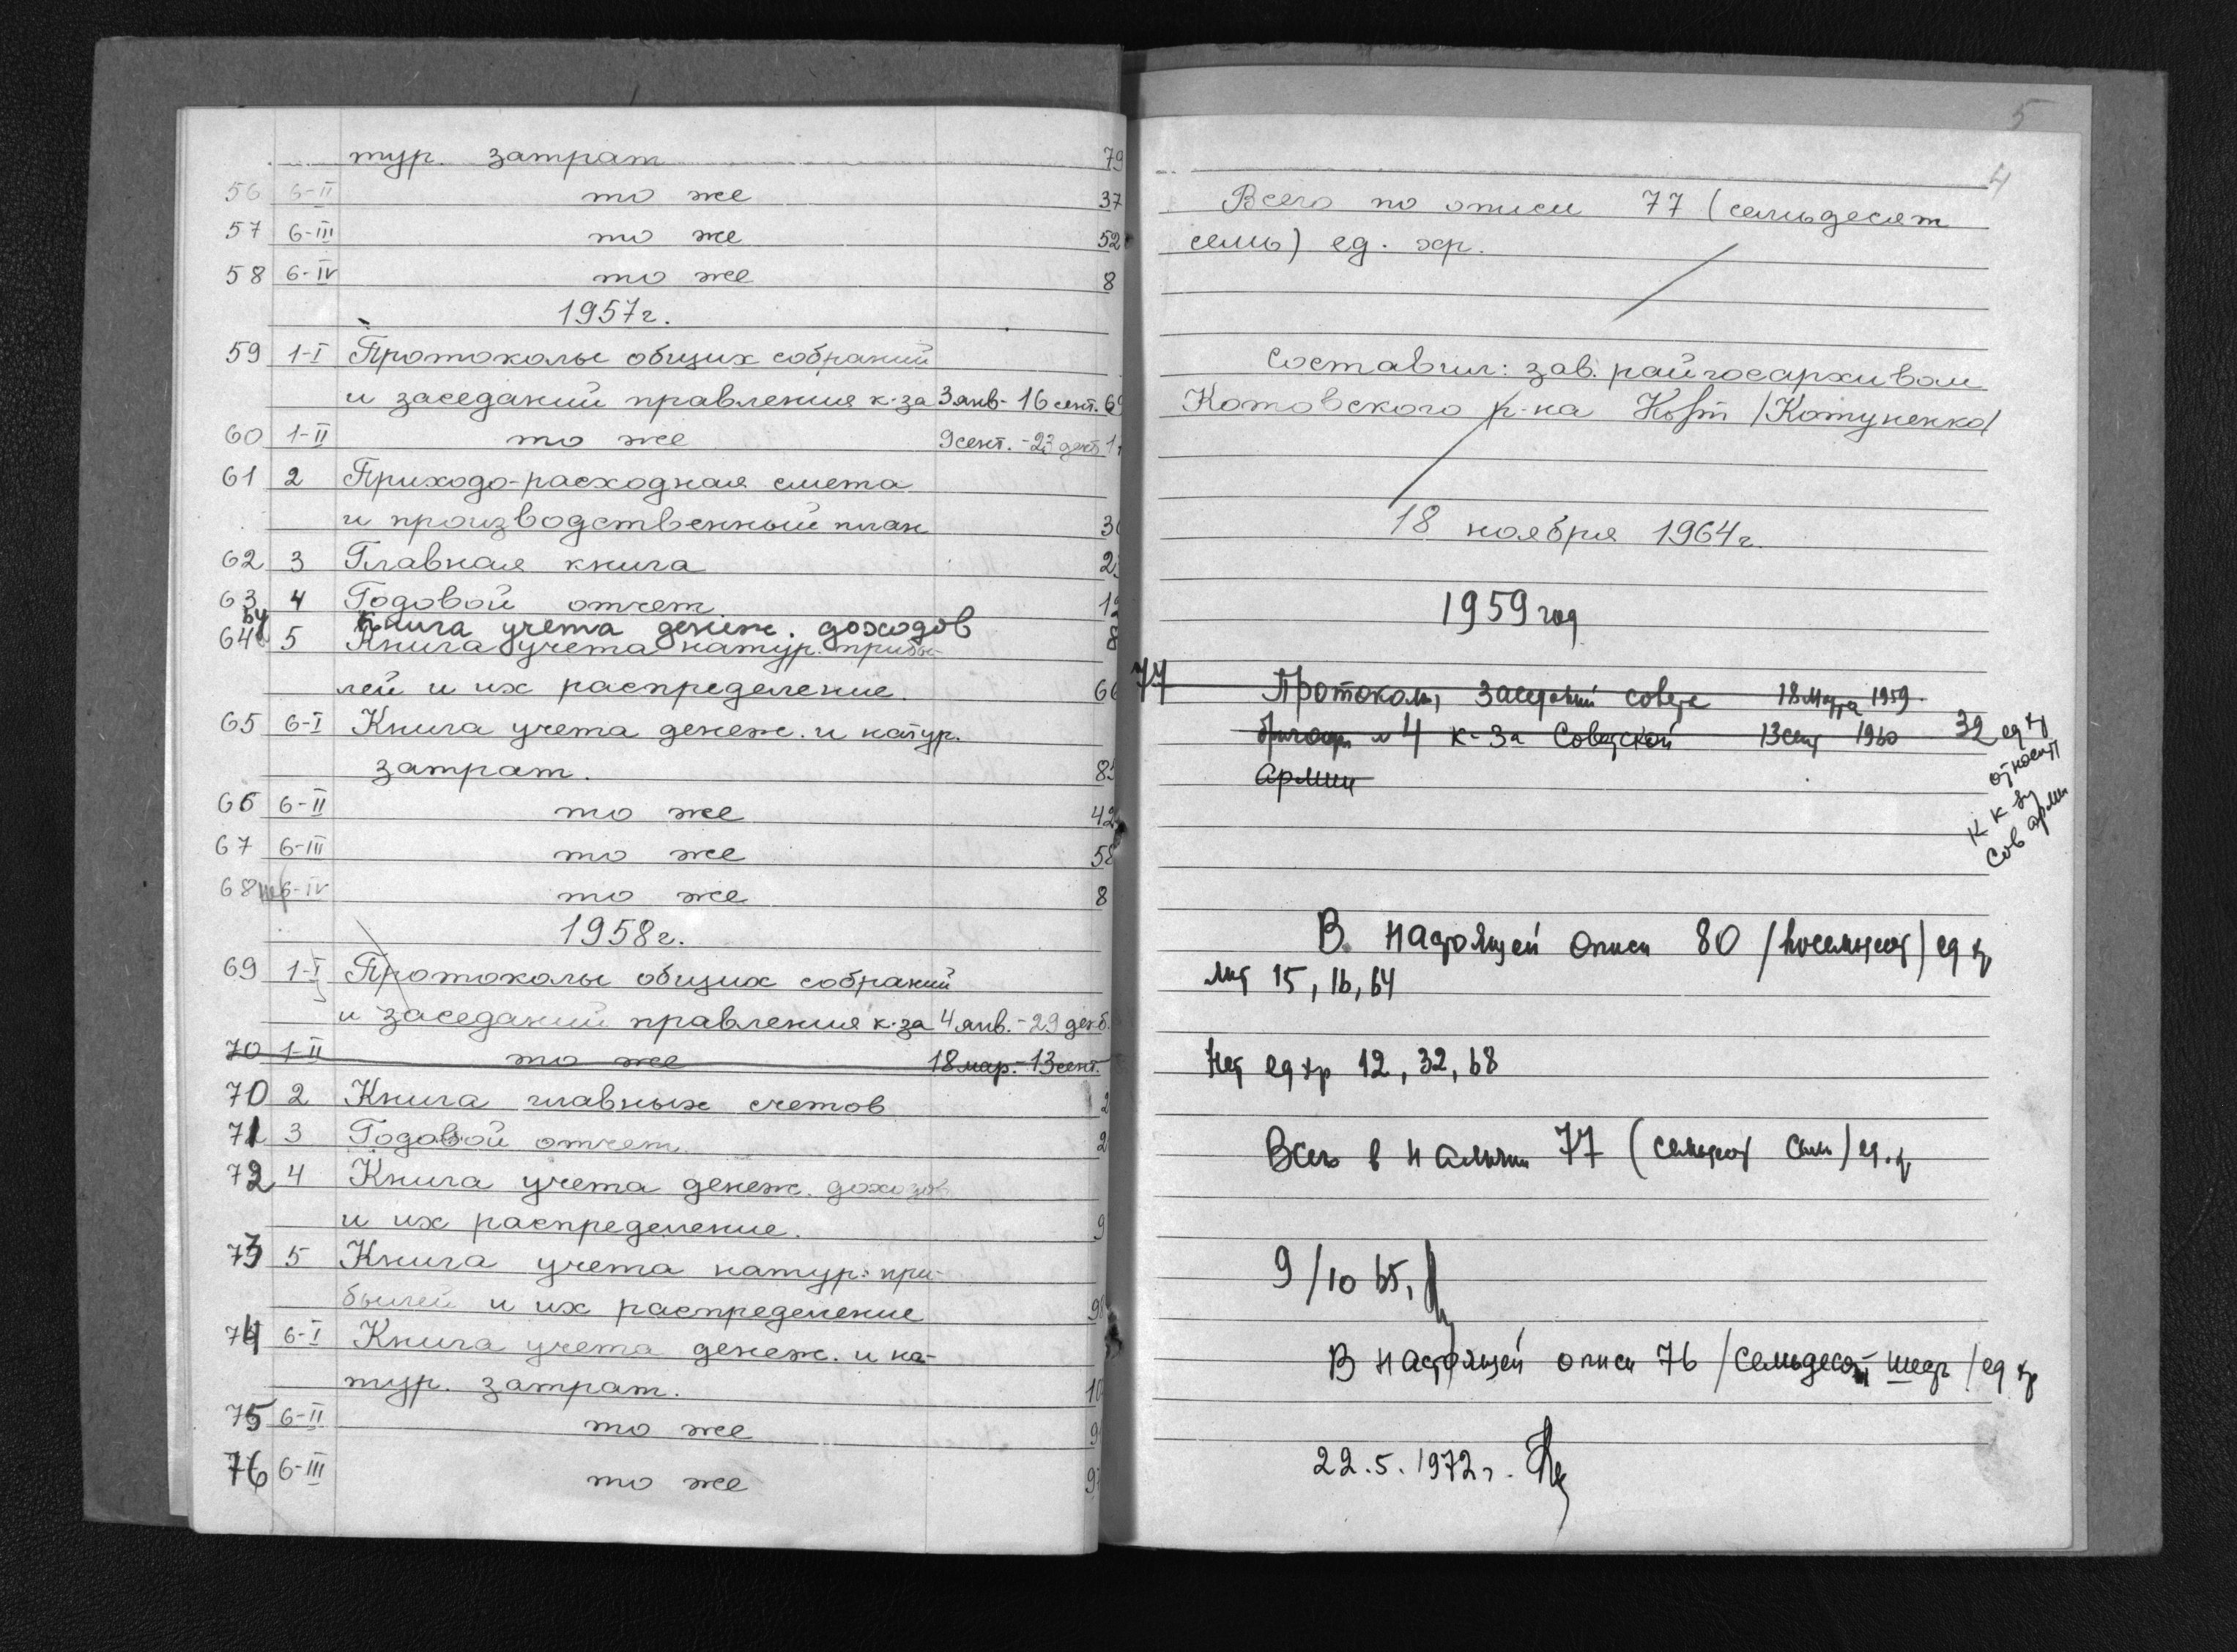 тур. затрат 79
56 6-II то же 37
57 6-III то же 52
58 6-IV то же 8
1957г.
59 1-I Протоколы общих собраний
и заседаний правления к-за 3 янв- 16 сент.
60 1-II то же 9 сент. - 23 дек
61 2 Приходо-расходная смета
и производственный план
62 3 Главная книга
63 4 Годовой отчет
Книга учета денеж. доходов
64 5 Книга учета натур. прибы-
лей и их распределение. 66
65 6-I Книга учета денеж. и натур.
затрат.
66 6-II то же 42
67 6-III то же 58
68 6-IV то же 8
1958г.
69 1-I Протоколы общих собраний
и заседаний правления к-за 4 янв. - 29 декб.
70 1-II то же 18 мар. - 13 сент.
70 2 Книга главных счетов
71 3 Годовой отчет
72 4 Книга учета денеж. доходов
и их распределение.
73 5 Книга учета натур. при-
былей и их распределение
74 6-I Книга учета денеж. и на-
тур. затрат.
75 6-II то же
76 6-III то же
5
4
Всего по описи 77 (семьдесят
семь) ед. хр.
Составил: зав. райгосархивом
Котовского р-на /Котуненко/
18 ноября 1964г.
1959 год
77 Протоколы заседаний совета 18 марта 1959
№ 4 к-за Советской 13 сент 1960 32 ед хр
Армии
относит
к к-зу
Сов арми
В настоящей описи 80 /восемьдесят/ ед хр
лит 15, 16, 64
Нет ед хр 12, 32, 68
Всего в наличии 77 (семьдесят семь) ед.хр
9/10 65,
В настоящей описи 76 /семьдесят шесть/ ед хр
22.5.1972г.